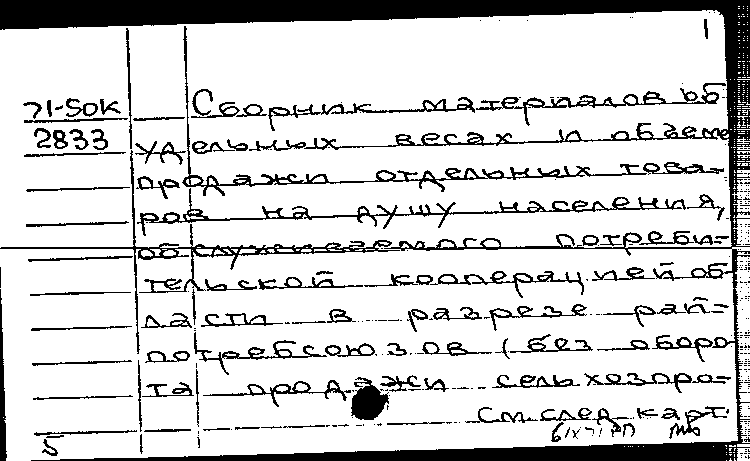 1
71-50К
2833
Сборник материалов об
удельных весах и объеме
продажи отдельных това-
ров на душу населения,
обслуживаемого потреби-
тельской кооперацией об-
ласти в разрезе рай-
потребсоюзов (без оборо-
та продажи сельхозпро-
См. след. карт.
5